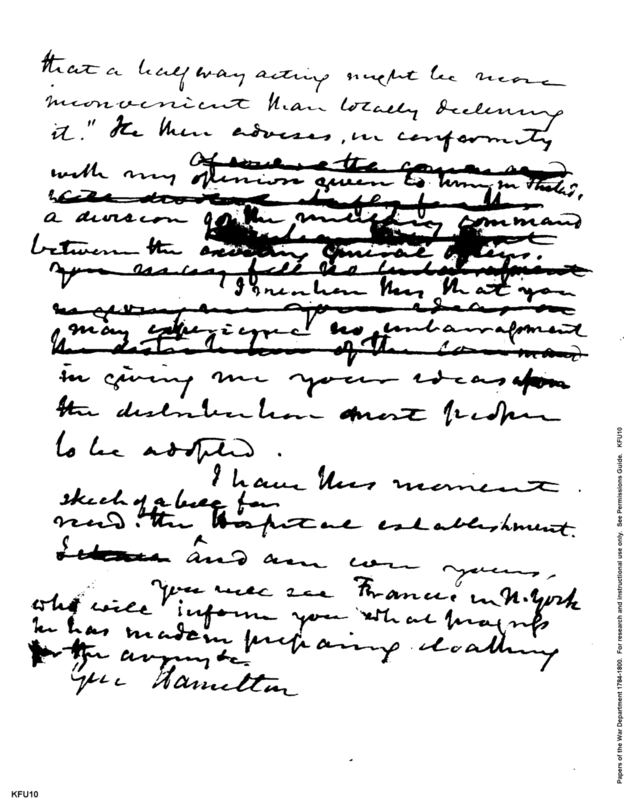 that a half way acting might be more
inconvenient than totally declining
it." He then advises, in conformity
with my opinion given to him in
a division of the military command
between the general officers.
I mention this that you
may experience no embarrassment
in giving me your ideas upon
the distribution most proper
to be adopted.
I have this moment
sketch of a bill for
recd. the Hospital establishment.
And am
You will see Francis in N. York
who will inform you what progress
he has made in preparing cloathing
for the army &c.
Genl Hamilton
KFU10
Papers of the War Department 1784-1800. For research and instructional use only. See Permissions Guide. KFU10